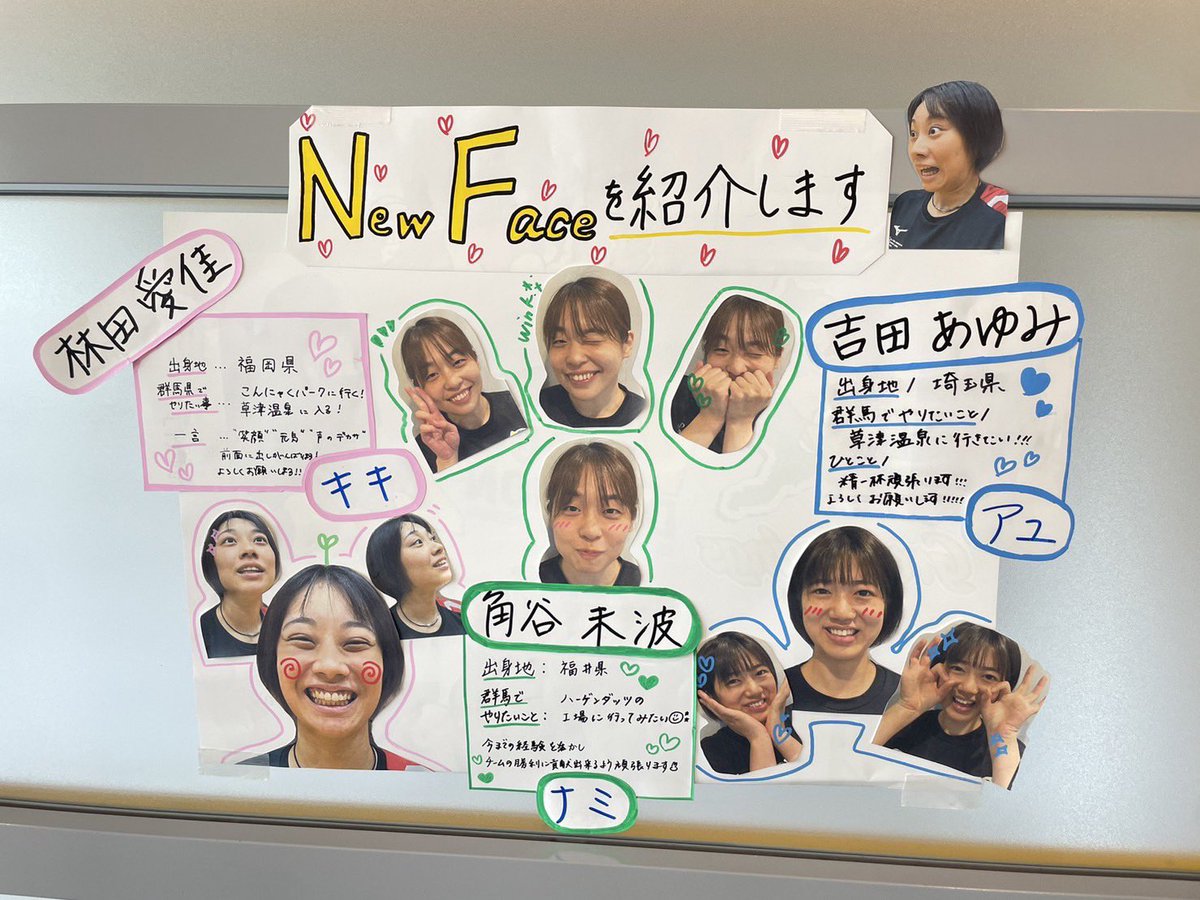 New Faceを紹介します
林田愛佳
出身地…福岡県
群馬県で
やりたい事…こんにゃくパークに行く!
草津温泉に入る!
一言…"笑顔""元気""声のデカサ"
前面に出しがんばります!
よろしくお願いします!!
キキ
wink
吉田 あゆみ
出身地/ 埼玉県
群馬でやりたいこと/
草津温泉に行きたい!!!
ひとこと/
精一杯頑張ります!!!
よろしくお願いします!!!!!
アユ
角谷 未波
出身地: 福井県
群馬で
やりたいこと: ハーゲンダッツの
工場に行ってみたい
今までの経験を活かし
チームの勝利に貢献出来るよう頑張ります
ナミ